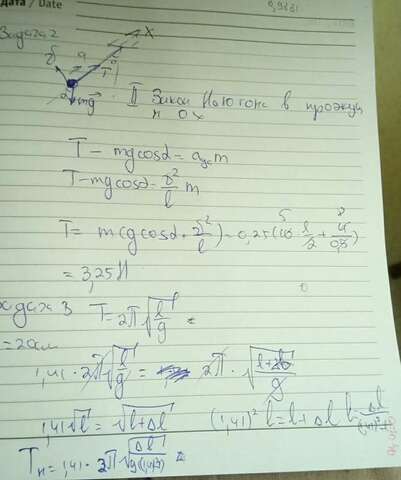 Дата / Date
Задача 2
x
T
mg
α
II Закон Ньютона в проэкции
на OX
T - mgcosα = aцс m
T - mgcosα = υ²/l m
T = m(gcosα + υ²/l) = 0,25(10 · 1/2 + 4/0,5)
5 8
= 3,25 Н
Задача 3 T = 2π√(l/g) =
= 20см
1,41 · 2π√(l/g) = 2π · √((l+Δl)/g)
1,41√l = √(l+Δl) (1,41)² l = l + Δl l = Δl/((1,41)²-1)
Tн = 1,41 · 2π√